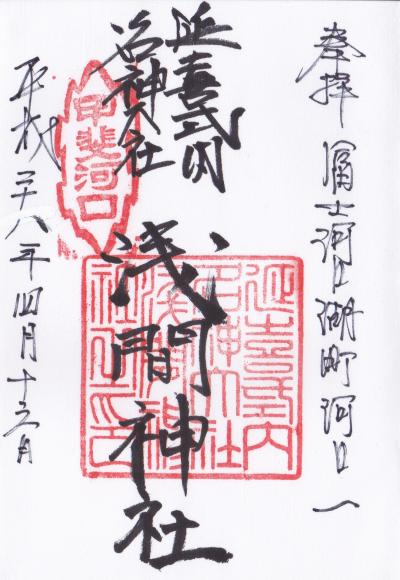 奉拝 富士河口湖町河口一
延喜式内
名神大社
浅間神社
甲斐河口
延喜式内
名神大社
浅間神
社之印
平成二十八年四月十六日